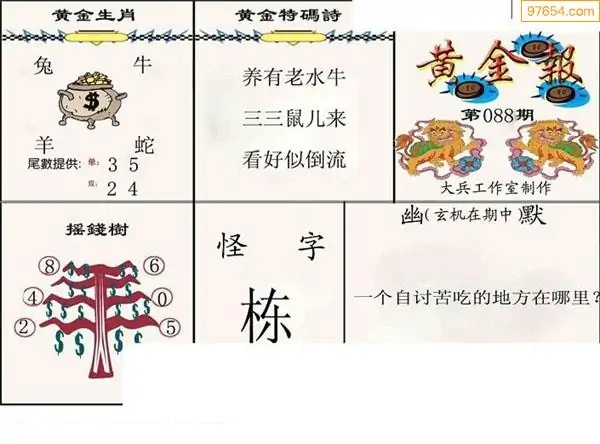 97654.com
黄金生肖
兔 牛
羊 蛇
尾數提供: 单: 3 5
双: 2 4
黄金特碼詩
养有老水牛
三三鼠儿来
看好似倒流
黄金報
第088期
大兵工作室制作
摇錢樹
8 6
4 0
2 5
怪 字
栋
幽(玄机在期中)默
一个自讨苦吃的地方在哪里?